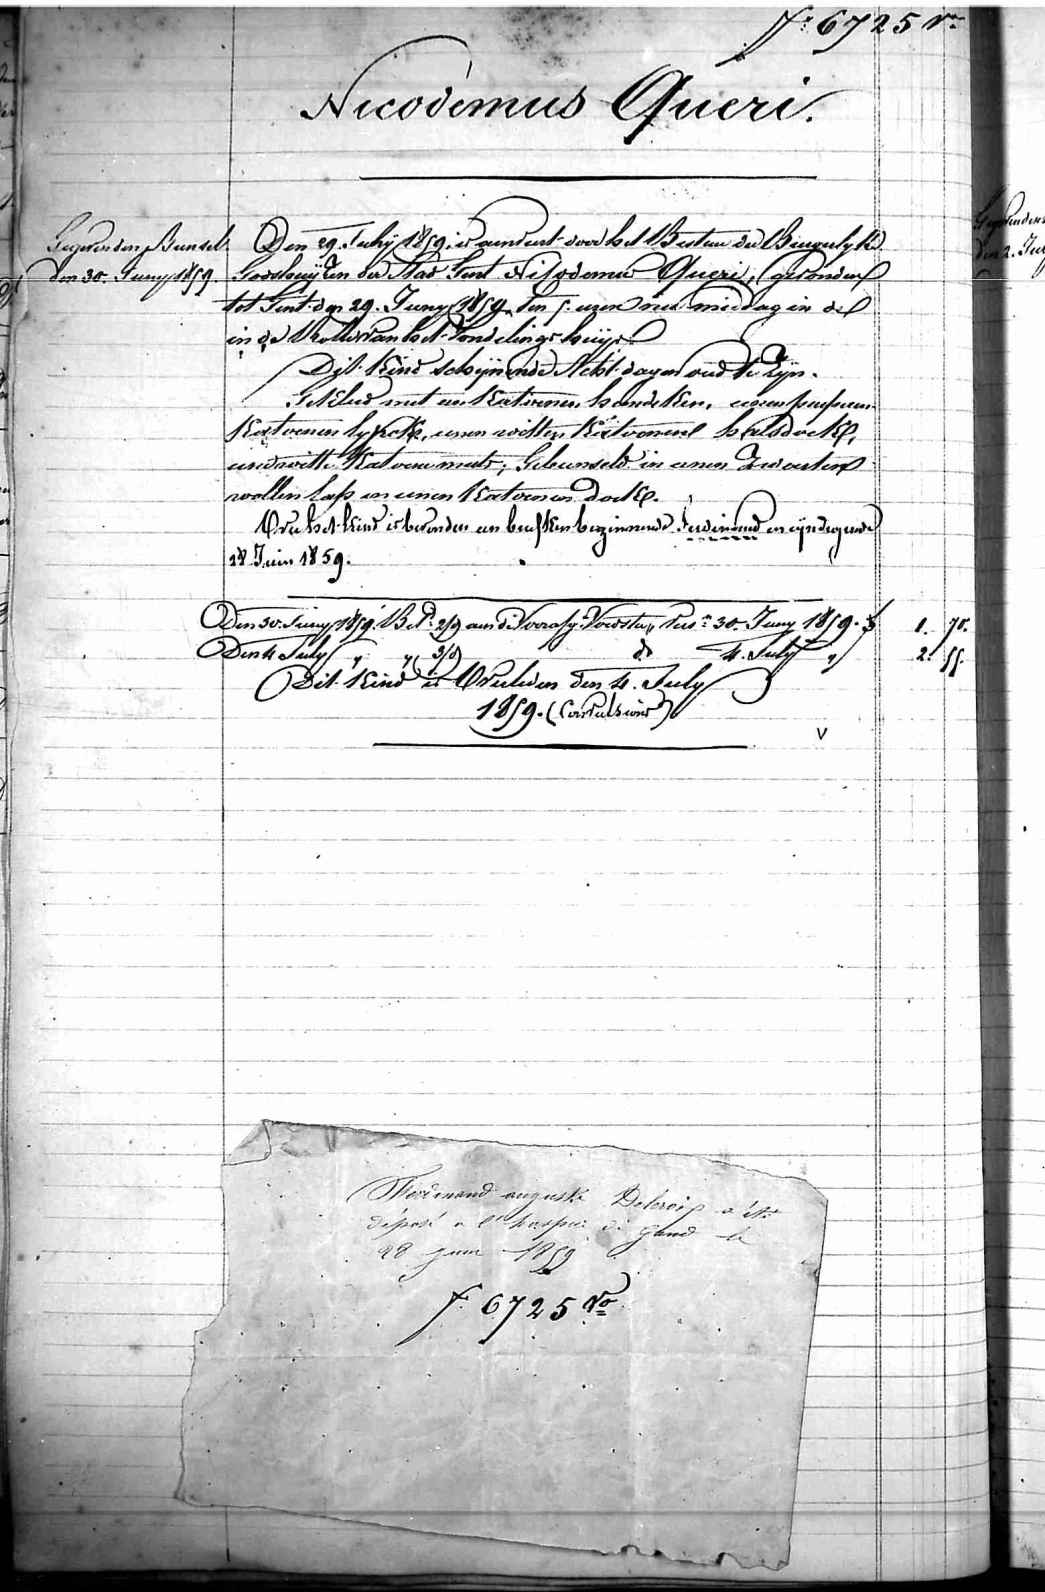 fo 6725 Vo
Nicodemus Queri.
Gegeven den Bunsel
den 30. Juny 1859.
Den 29. July 1859. is aenveert door het Bestier der Burgerlyke
Godshuyzen der Stad Gent Nikodemus Queri, gevonden
tot Gent den 29. Juny 1859. ten 5. uren namiddag in de
in de Rolle van het Vondelingshuys
Dit kind schijnende Acht dagen oud te zijn.
Gekleed met een katoenen hemdeken, eenen
katoenen, eenen witten katoenen halsdoek,
eene witte katoenen muts; Gebunseld in eenen zwarten
wollen lap en eenen katoenen doek.
Op het kind is bevonden een briefken beginnende ferdinand en eyndigende
28 Juin 1859.
Den 30. Juny 1859. Bet. 2/9 aen de Voorsz. Voedster, sedert 30. Juny 1859. 1. 70.
Den 4 July " " 3/8 do 4. July " 2. 55.
Dit Kind is Overleden den 4. July
1859. (Convulsions)
V
Gegeven den
den 2. July
Ferdinand auguste Delcroix a été
déposé a l'hospice de gand le
28 juin 1859
fo 6725 Vo